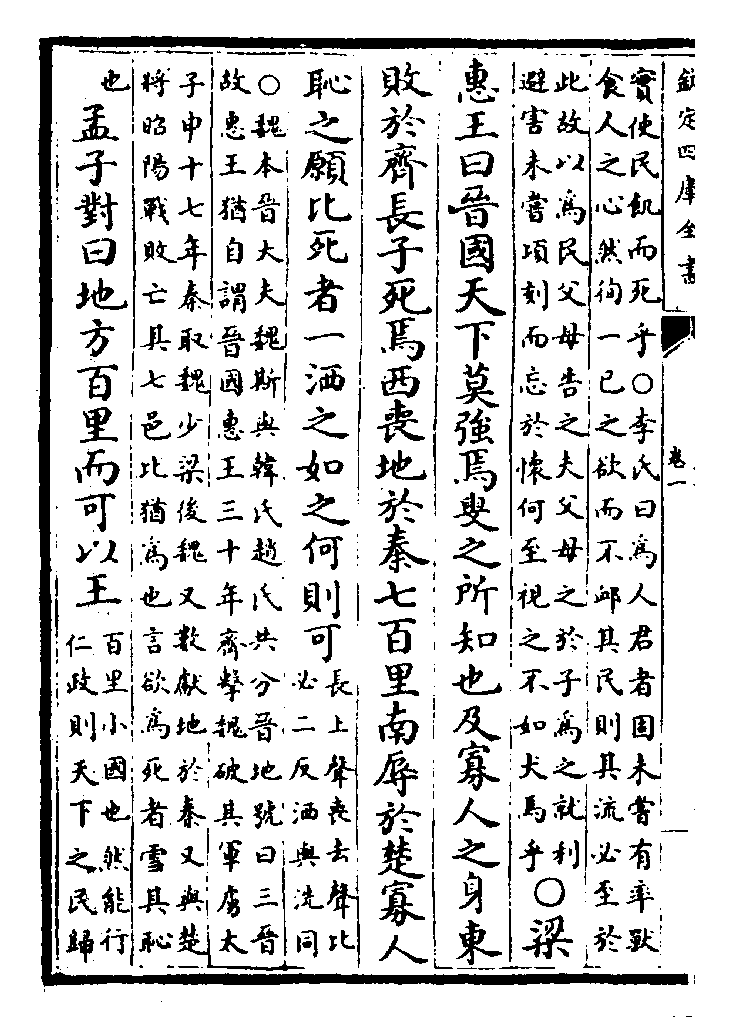 欽定四庫全書
卷一
實使民飢而死乎○李氏曰為人君者固未嘗有率獸
食人之心然徇一己之欲而不卹其民則其流必至於
此故以為民父母告之夫父母之於子為之就利
避害未嘗頃刻而忘於懷何至視之不如犬馬乎
○梁
惠王曰晉國天下莫強焉叟之所知也及寡人之身東
敗於齊長子死焉西喪地於秦七百里南辱於楚寡人
恥之願比死者一洒之如之何則可
長上聲喪去聲比
必二反洒與洗同
○魏本晉大夫魏斯與韓氏趙氏共分晉地號曰三晉
故惠王猶自謂晉國惠王三十年齊擊魏破其軍虜太
子申十七年秦取魏少梁後魏又數獻地於秦又與楚
將昭陽戰敗亡其七邑比猶為也言欲為死者雪其恥
也
孟子對曰地方百里而可以王
百里小國也然能行
仁政則天下之民歸